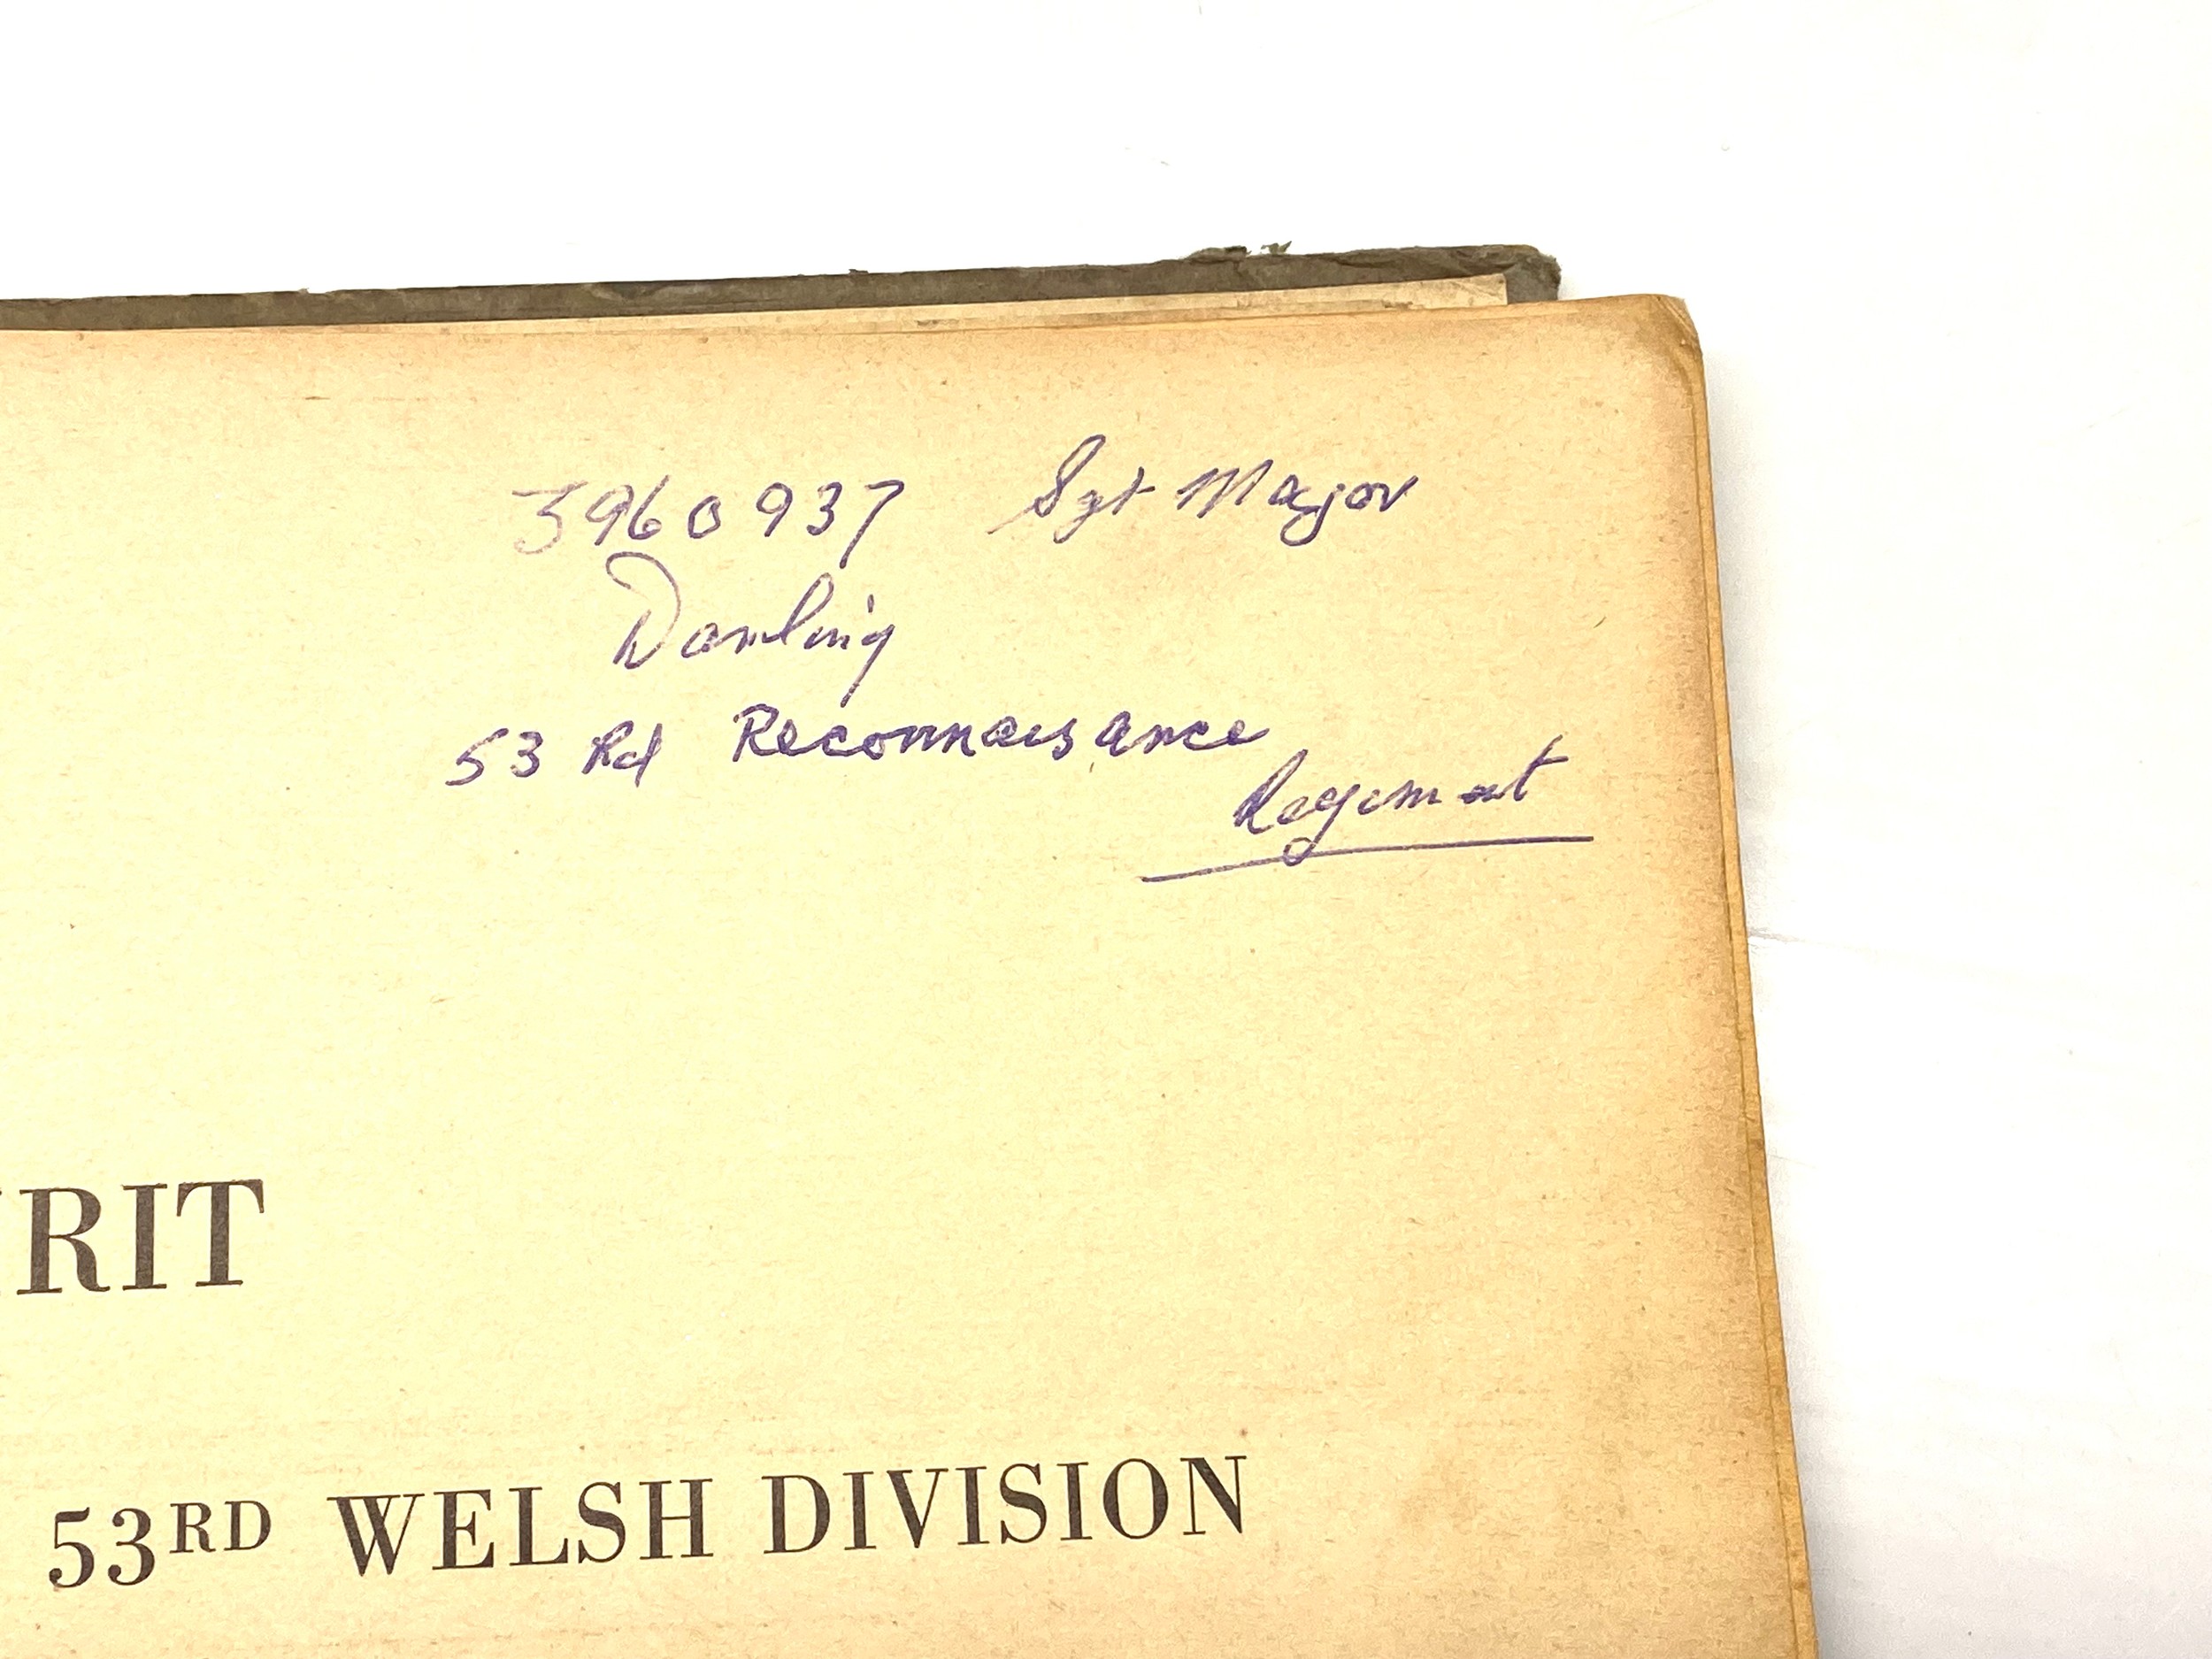 3960937 Sgt Major
Dowling
53 Rd Reconnaisance
Regiment
RIT
53RD WELSH DIVISION